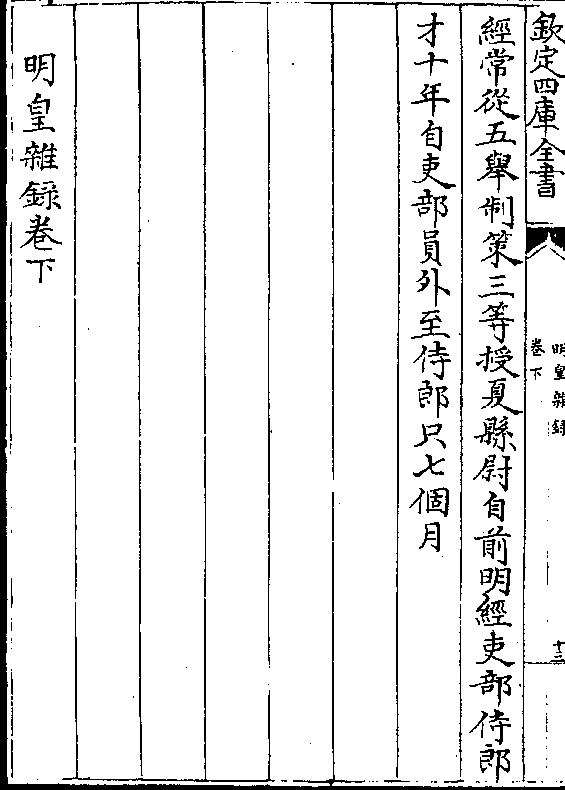 欽定四庫全書
明皇雜録
卷下
十三
經常從五舉制策三等授夏縣尉自前明經吏部侍郎
才十年自吏部員外至侍郎只七個月
明皇雜録卷下